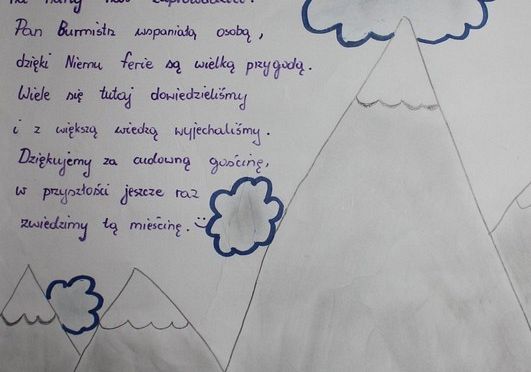 Pan Burmistrz wspaniałą osobą,
dzięki Niemu ferie są wielką przygodą.
Wiele się tutaj dowiedzieliśmy
i z większą wiedzą wyjechaliśmy.
Dziękujemy za cudowną gościnę,
w przyszłości jeszcze raz
zwiedzimy tą mieścinę.